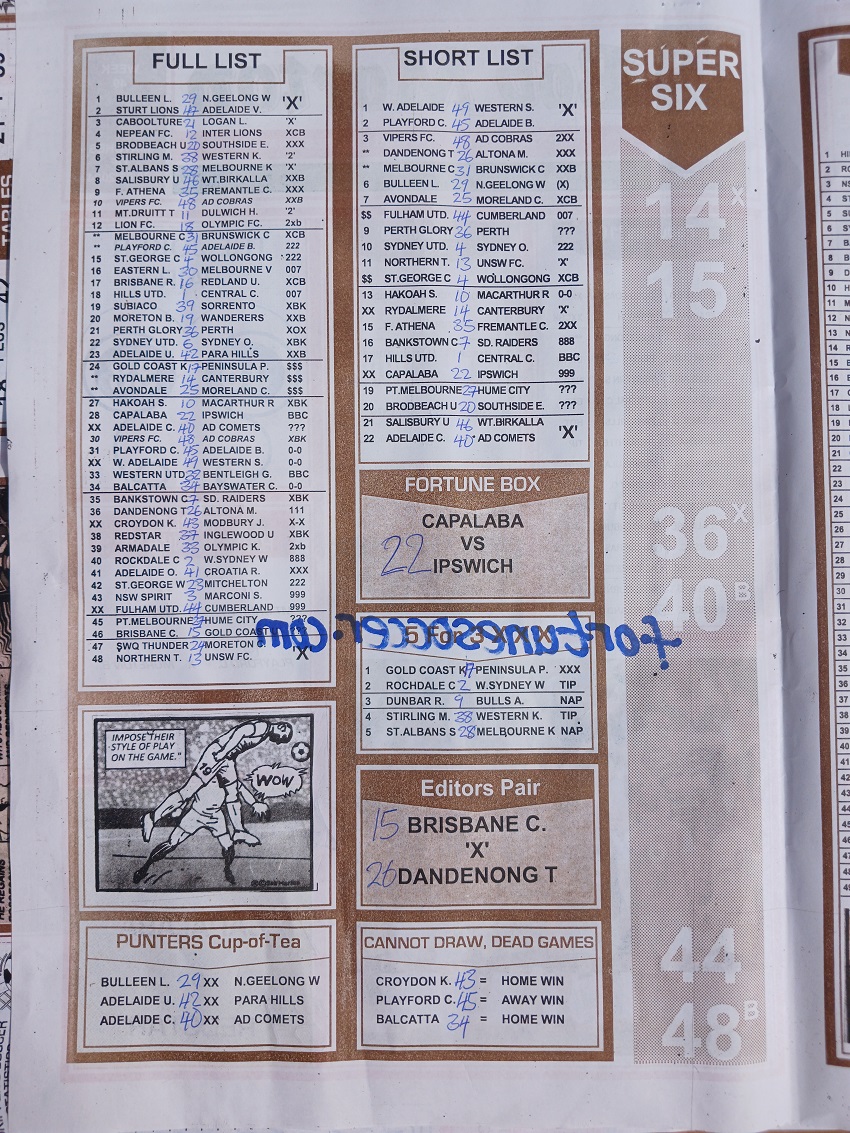 FULL LIST
1 BULLEEN L. 29 N.GEELONG W 'X'
2 STURT LIONS 47 ADELAIDE V.
3 CABOOLTURE 21 LOGAN L. 'X'
4 NEPEAN FC. 12 INTER LIONS XCB
5 BRODBEACH U 20 SOUTHSIDE E. XXX
6 STIRLING M. 38 WESTERN K. '2'
7 ST.ALBANS S 28 MELBOURNE K 'X'
8 SALISBURY U 46 WT.BIRKALLA XXB
9 F. ATHENA 35 FREMANTLE C. XXX
10 VIPERS FC. 48 AD COBRAS XXB
11 MT.DRUITT T 11 DULWICH H. '2'
12 LION FC. 18 OLYMPIC FC. 2xb
** MELBOURNE C 31 BRUNSWICK C XCB
** PLAYFORD C. 45 ADELAIDE B. 222
15 ST.GEORGE C 4 WOLLONGONG 222
16 EASTERN L. 30 MELBOURNE V 007
17 BRISBANE R. 16 REDLAND U. XCB
18 HILLS UTD. 1 CENTRAL C. 007
19 SUBIACO 39 SORRENTO XBK
20 MORETON B. 19 WANDERERS XXB
21 PERTH GLORY 36 PERTH XOX
22 SYDNEY UTD. 6 SYDNEY O. XBK
23 ADELAIDE U. 42 PARA HILLS XXB
24 GOLD COAST K 17 PENINSULA P. $$$
** RYDALMERE 14 CANTERBURY $$$
** AVONDALE 25 MORELAND C. $$$
27 HAKOAH S. 10 MACARTHUR R XBK
28 CAPALABA 22 IPSWICH BBC
XX ADELAIDE C. 40 AD COMETS ???
30 VIPERS FC. 48 AD COBRAS XBK
31 PLAYFORD C. 45 ADELAIDE B. 0-0
XX W. ADELAIDE 49 WESTERN S. 0-0
33 WESTERN UTD 32 BENTLEIGH G. BBC
34 BALCATTA 34 BAYSWATER C. 0-0
35 BANKSTOWN C 7 SD. RAIDERS XBK
36 DANDENONG T 26 ALTONA M. 111
XX CROYDON K. 43 MODBURY J. X-X
38 REDSTAR 37 INGLEWOOD U XBK
39 ARMADALE 33 OLYMPIC K. 2xb
40 ROCKDALE C 2 W.SYDNEY W 888
41 ADELAIDE O. 41 CROATIA R. XXX
42 ST.GEORGE W 23 MITCHELTON 222
43 NSW SPIRIT 3 MARCONI S. 999
XX FULHAM UTD. 44 CUMBERLAND 999
45 PT.MELBOURNE 27 HUME CITY ???
46 BRISBANE C. 15 GOLD COAST U ???
47 SWQ THUNDER 24 MORETON
48 NORTHERN T. 13 UNSW FC. 'X
IMPOSE THEIR
STYLE OF PLAY
ON THE GAME."
WOW
10
PUNTERS Cup-of-Tea
BULLEEN L. 29 XX N.GEELONG W
ADELAIDE U. 42 XX PARA HILLS
ADELAIDE C. 40 XX AD COMETS
SHORT LIST
1 W. ADELAIDE 49 WESTERN S. 'X'
2 PLAYFORD C. 45 ADELAIDE B.
3 VIPERS FC. 48 AD COBRAS 2XX
** DANDENONG T 26 ALTONA M. XXX
** MELBOURNE C 31 BRUNSWICK C XXB
6 BULLEEN L. 29 N.GEELONG W (X)
7 AVONDALE 25 MORELAND C. XCB
$$ FULHAM UTD. 44 CUMBERLAND 007
9 PERTH GLORY 36 PERTH ???
10 SYDNEY UTD. 4 SYDNEY O. 222
11 NORTHERN T. 13 UNSW FC. 'X'
$$ ST.GEORGE C 4 WOLLONGONG XCB
13 HAKOAH S. 10 MACARTHUR R 0-0
XX RYDALMERE 14 CANTERBURY 'X'
15 F. ATHENA 35 FREMANTLE C. 2XX
16 BANKSTOWN C 7 SD. RAIDERS 888
17 HILLS UTD. 1 CENTRAL C. BBC
XX CAPALABA 22 IPSWICH 999
19 PT.MELBOURNE 27 HUME CITY ???
20 BRODBEACH U 20 SOUTHSIDE E. ???
21 SALISBURY U 46 WT.BIRKALLA 'X'
22 ADELAIDE C. 40 AD COMETS
FORTUNE BOX
CAPALABA
VS
22 IPSWICH
fortunesoccer.com
5 For 3 X X X
1 GOLD COAST K 17 PENINSULA P. XXX
2 ROCHDALE C 2 W.SYDNEY W TIP
3 DUNBAR R. 9 BULLS A. NAP
4 STIRLING M. 38 WESTERN K. TIP
5 ST.ALBANS S 28 MELBOURNE K NAP
Editors Pair
15 BRISBANE C.
'X'
26 DANDENONG T
CANNOT DRAW, DEAD GAMES
CROYDON K. 43 = HOME WIN
PLAYFORD C. 45 = AWAY WIN
BALCATTA 34 = HOME WIN
SUPER
SIX
14 X
15
36 X
40 B
44
48 B